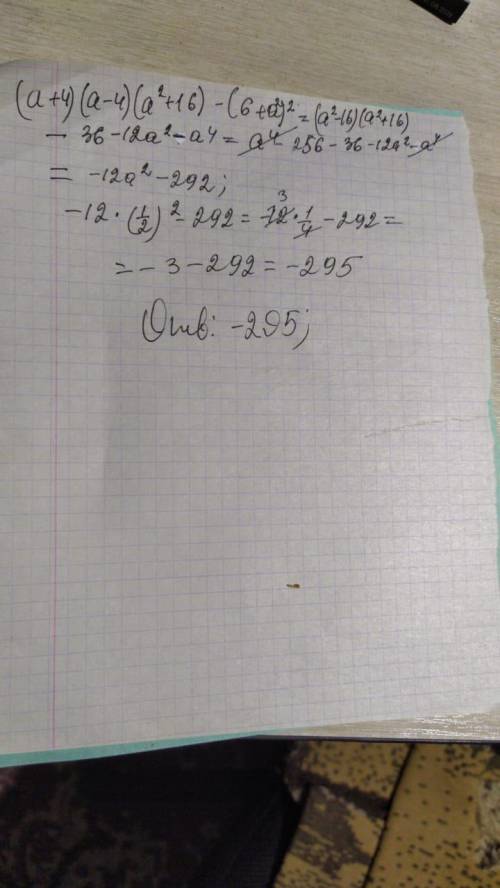 (a+4)(a-4)(a²+16) - (6+a²)² = (a²-16)(a²+16)
- 36-12a²-a4 = a⁴ - 256 - 36 - 12a² - a⁴
= -12a² - 292;
-12 · (1/2)² - 292 = -12 · 1/4 - 292 =
3
= - 3 - 292 = -295
Отв: -295;